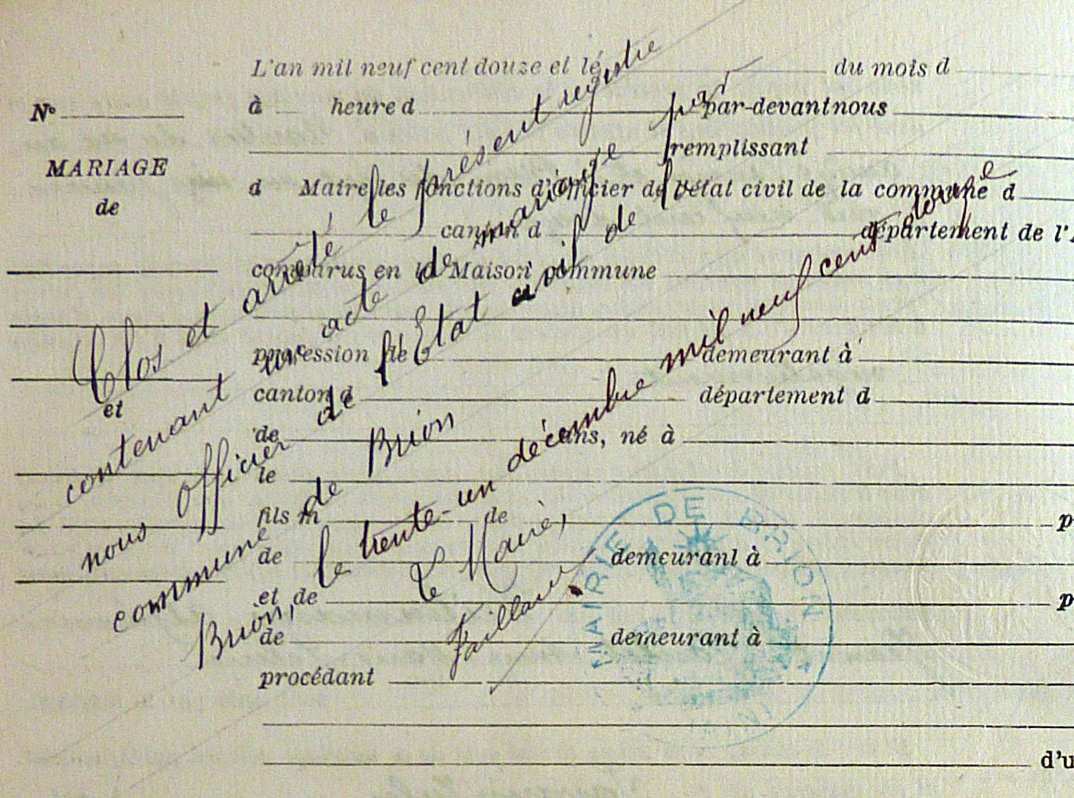 L'an mil neuf cent douze et le du mois d
N° à heure d par-devant nous
remplissant
MARIAGE
d Maire les fonctions d'officier de l'état civil de la commune d
de
canton d département de l'A
comparus en la Maison commune
profession de demeurant à
canton d département d
et
de ans, né à
le
fils m de p
de demeurant à
et de p
de demeurant à
procédant
d'u
Clos et arrêté le présent registre
contenant un acte de mariage par
nous Officier de l'Etat civil de la
commune de Brion
Brion, le trente-un décembre mil neuf cent douze
Le Maire,
MAIRIE DE BRION